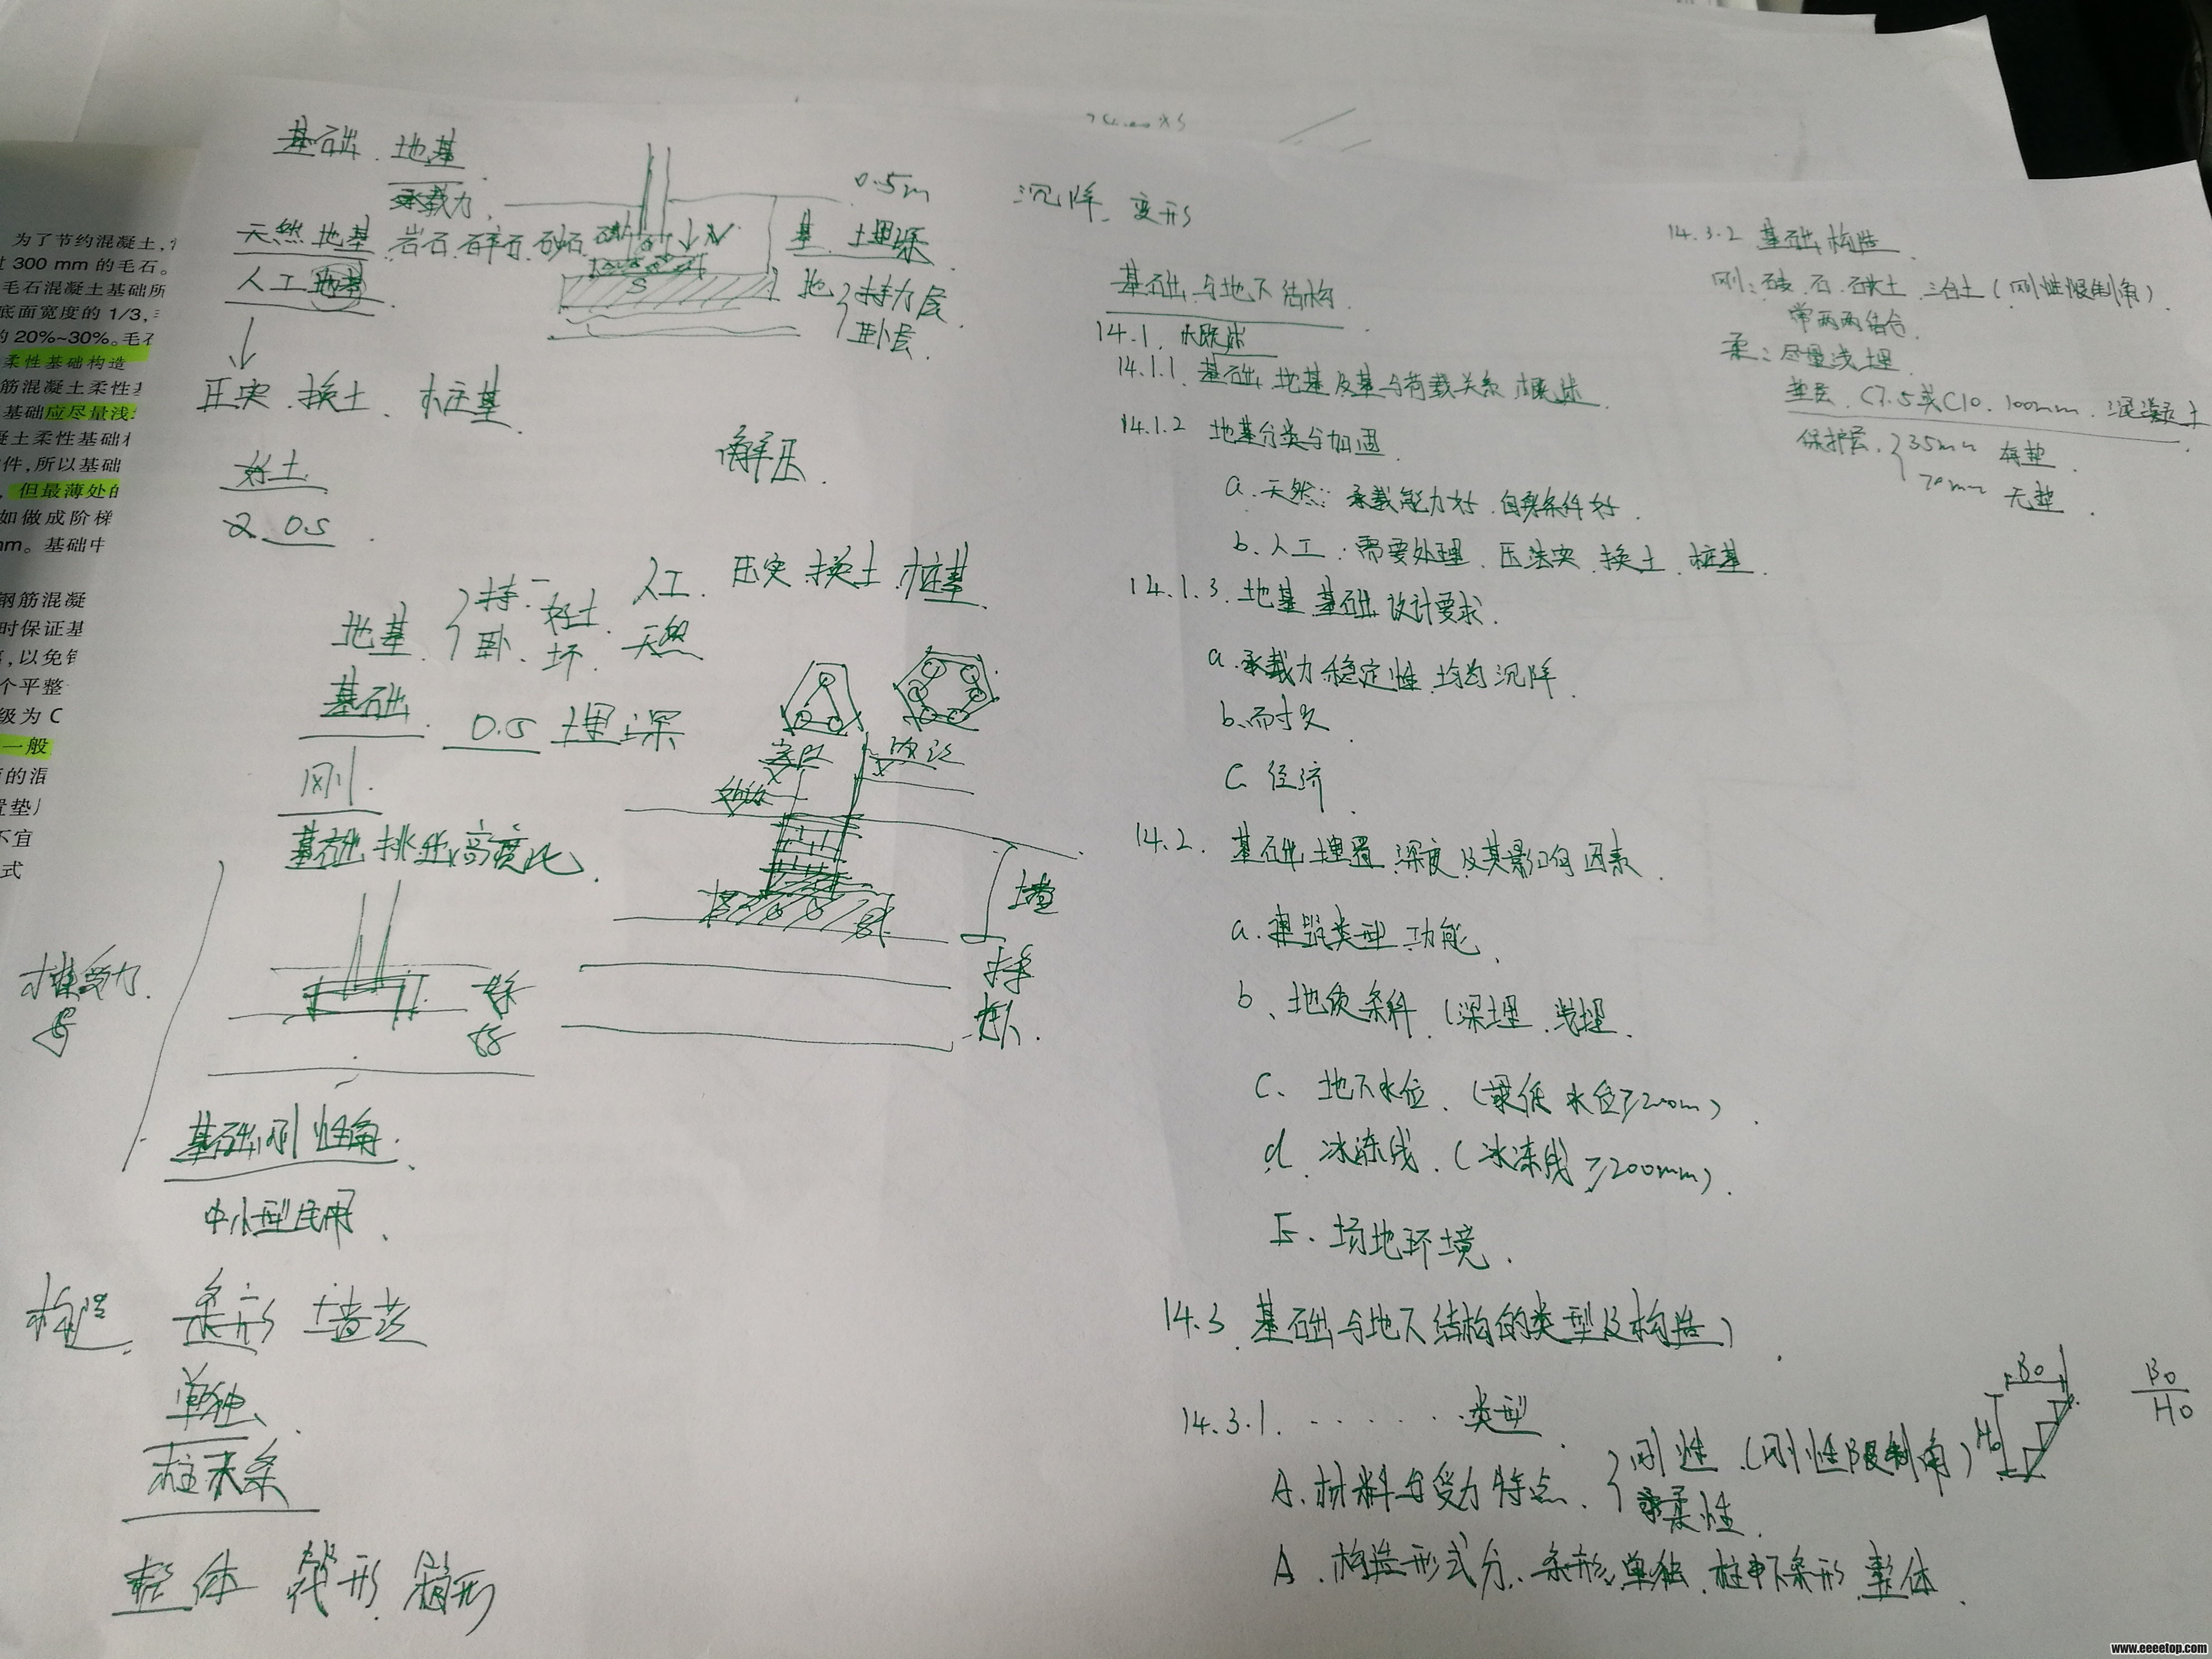 为了节约混凝土,
300 mm 的毛石。
毛石混凝土基础所
底面宽度的 1/3,
的 20%~30%。毛石
柔性基础构造
筋混凝土柔性基
基础应尽量浅
凝土柔性基础
件,所以基础
但最薄处的
如做成阶梯
mm。基础中
钢筋混凝
时保证基
,以免钢
个平整
级为 C
一般
的混
置垫
不宜
式
基础 地基
承载力
天然地基 岩石 碎石 砂石
人工地基
压实 换土 桩基
好土
0.5
0.5m
基 埋深
地 持力层
卧层
N
S
解压
人工 压实 换土 桩基
地基 持 好土
卧 坏 天然
基础 0.5 埋深
刚
基础挑出高度比
持
好
基础刚性角
中小型民用
构造 条形 墙
单独
柱末条
整体 筏形 箱形
沉降 变形
基础与地下结构
14.1 概述
14.1.1 基础、地基及基与荷载关系 概述
14.1.2 地基分类与加固
a. 天然: 承载能力好 自身条件好
b. 人工: 需要处理 压实 换土 桩基
14.1.3. 地基 基础 设计要求
a. 承载力 稳定性 均匀沉降
b. 耐久
C 经济
14.2. 基础埋置深度及其影响因素
a. 建筑类型 功能
b、地质条件 (深埋 浅埋
C、地下水位 (最低水位≥200m)
d 冰冻线 (冰冻线≥200mm)
E. 场地环境
14.3 基础与地下结构的类型及构造)
14.3.1. . . . . . . 类型
A. 材料与受力特点 刚性 (刚性限制角)
柔性
B0
H0
B0
H0
A. 构造形式分. 条形 单独 柱下条形 整体
14.3.2 基础构造
刚: 砖 石 砼 三合土 (刚性限制角)
常两两结合
柔: 尽量浅埋
垫层 C7.5或C10. 100mm. 混凝土
保护层 35mm 有垫
70mm 无垫
www.eeeetop.com